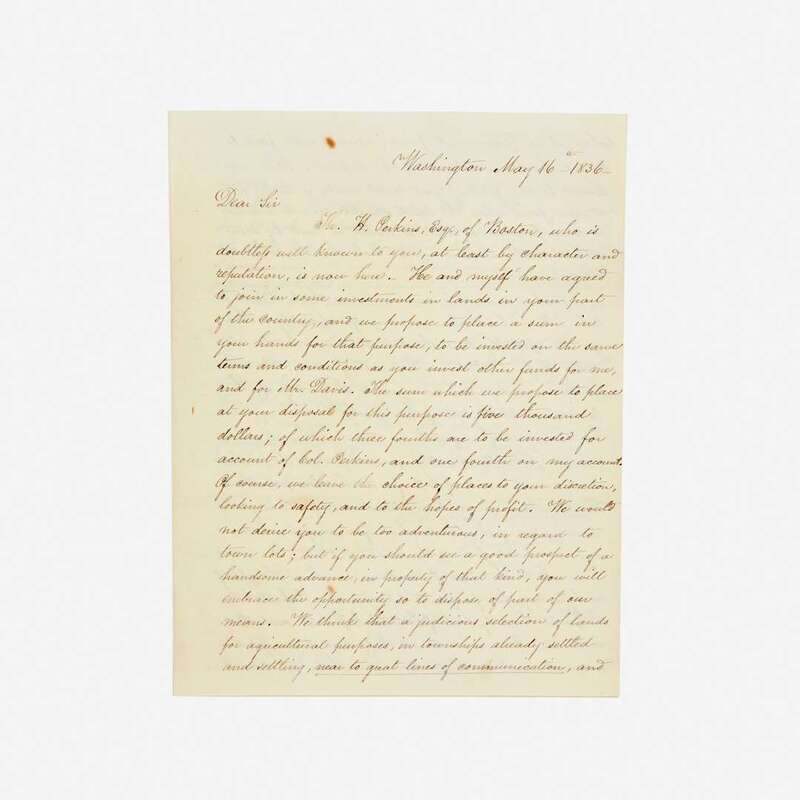 Washington May 16th 1836
Dear Sir
Th. H. Perkins, Esqr, of Boston, who is
doubtless well known to you, at least by character and
reputation, is now here. He and myself have agreed
to join in some investments in lands in your part
of the country, and we propose to place a sum in
your hands for that purpose, to be invested on the same
terms and conditions as you invest other funds for me,
and for Mr. Davis. The sum which we propose to place
at your disposal for this purpose is five thousand
dollars; of which three fourths are to be invested for
account of Col. Perkins, and one fourth on my account.
Of course, we leave the choice of places to your discretion,
looking to safety, and to the hopes of profit. We would
not desire you to be too adventurous, in regard to
town lots; but if you should see a good prospect of a
handsome advance, in property of that kind, you will
embrace the opportunity so to dispose of part of our
means. We think that a judicious selection of lands
for agricultural purposes, in townships already settled
and settling, near to great lines of communication, and